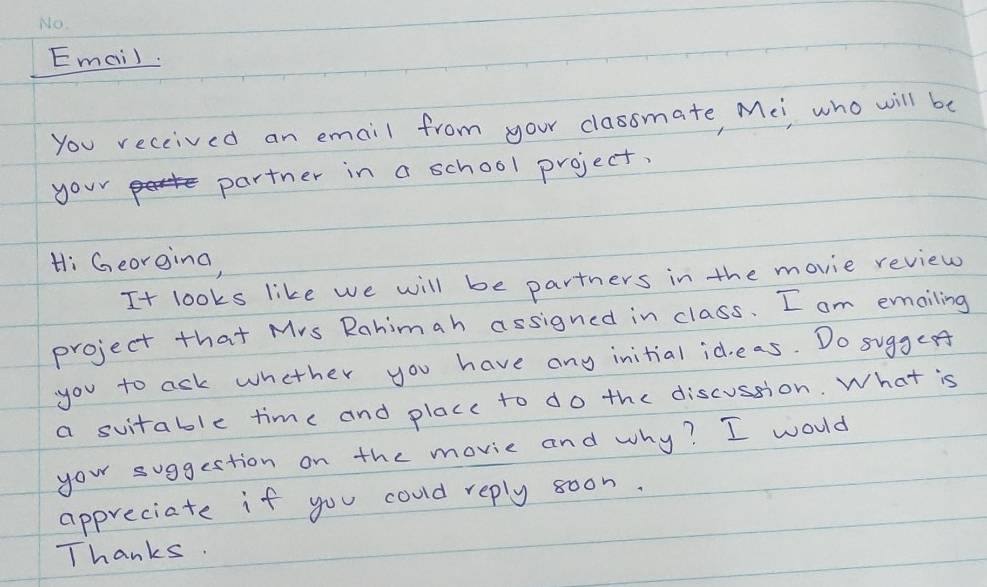 No.
Email.
You received an email from your classmate, Mei, who will be
your parte partner in a school project.
Hi Georgina,
It looks like we will be partners in the movie review
project that Mrs Rahimah assigned in class. I am emailing
you to ask whether you have any initial ideas. Do suggest
a suitable time and place to do the discussion. What is
your suggestion on the movie and why? I would
appreciate if you could reply soon.
Thanks.